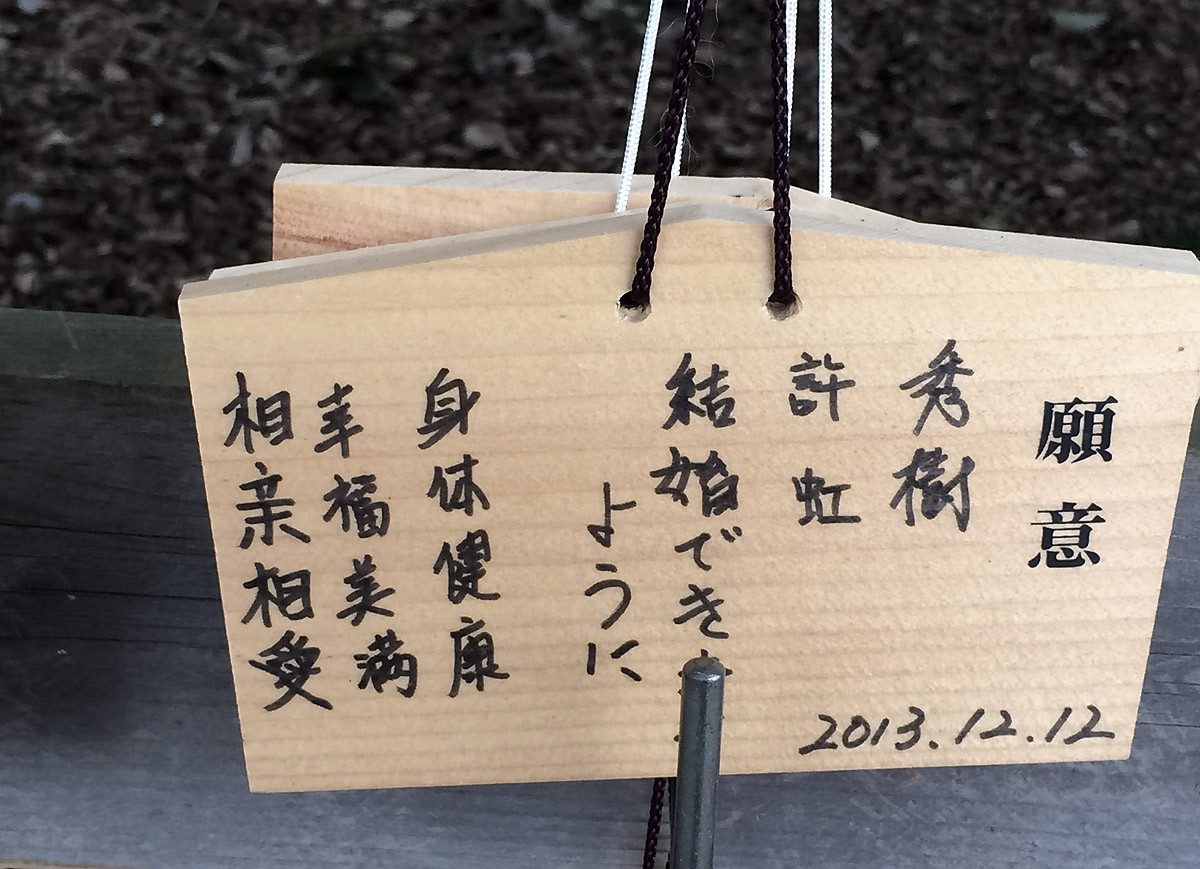 願意
秀樹
許虹
結婚でき
ように
身体健康
幸福美満
相亲相愛
2013.12.12